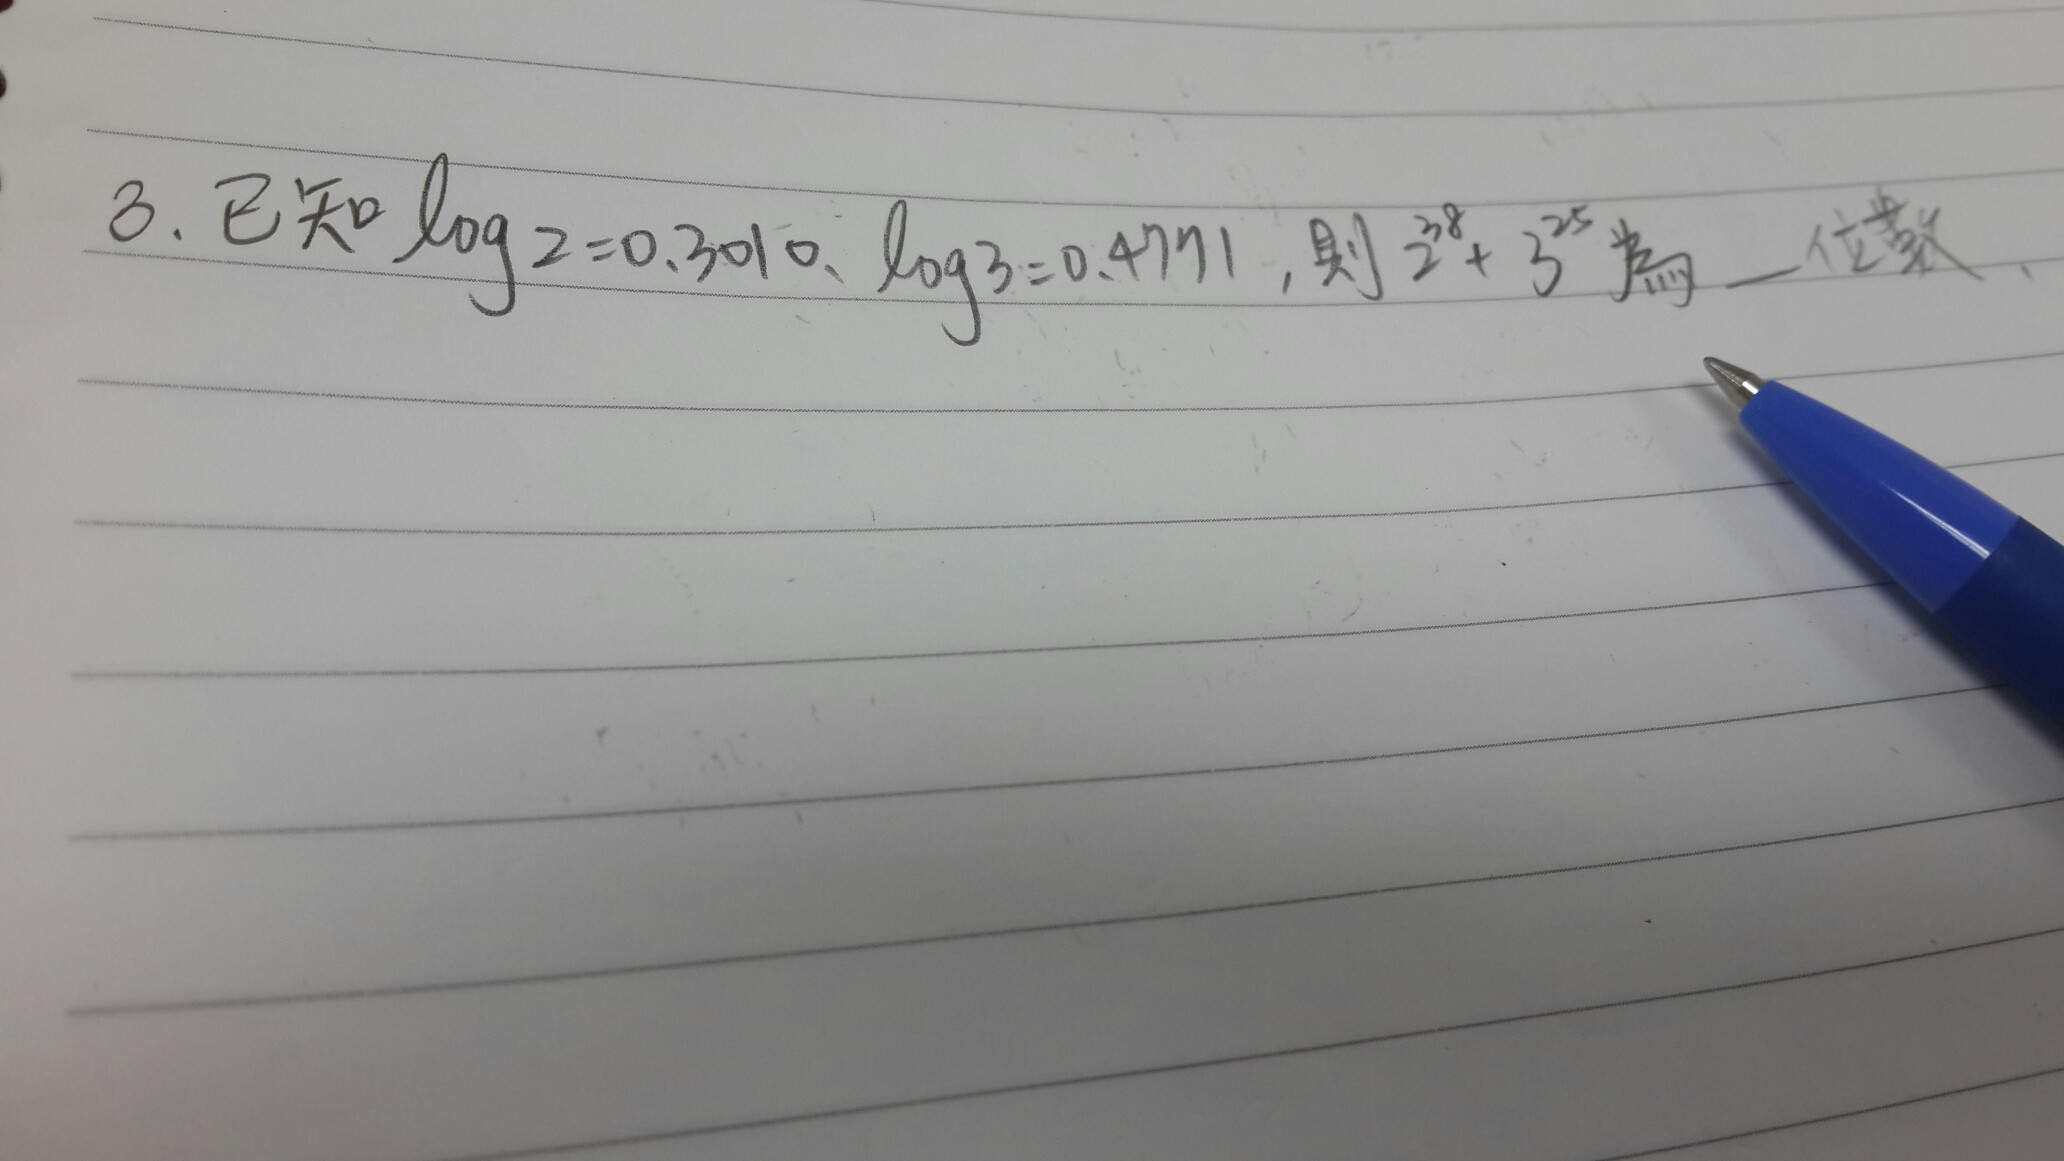 3. 已知 log2=0.3010、log3=0.4771，則 2³⁸+3²⁵ 為＿位數.